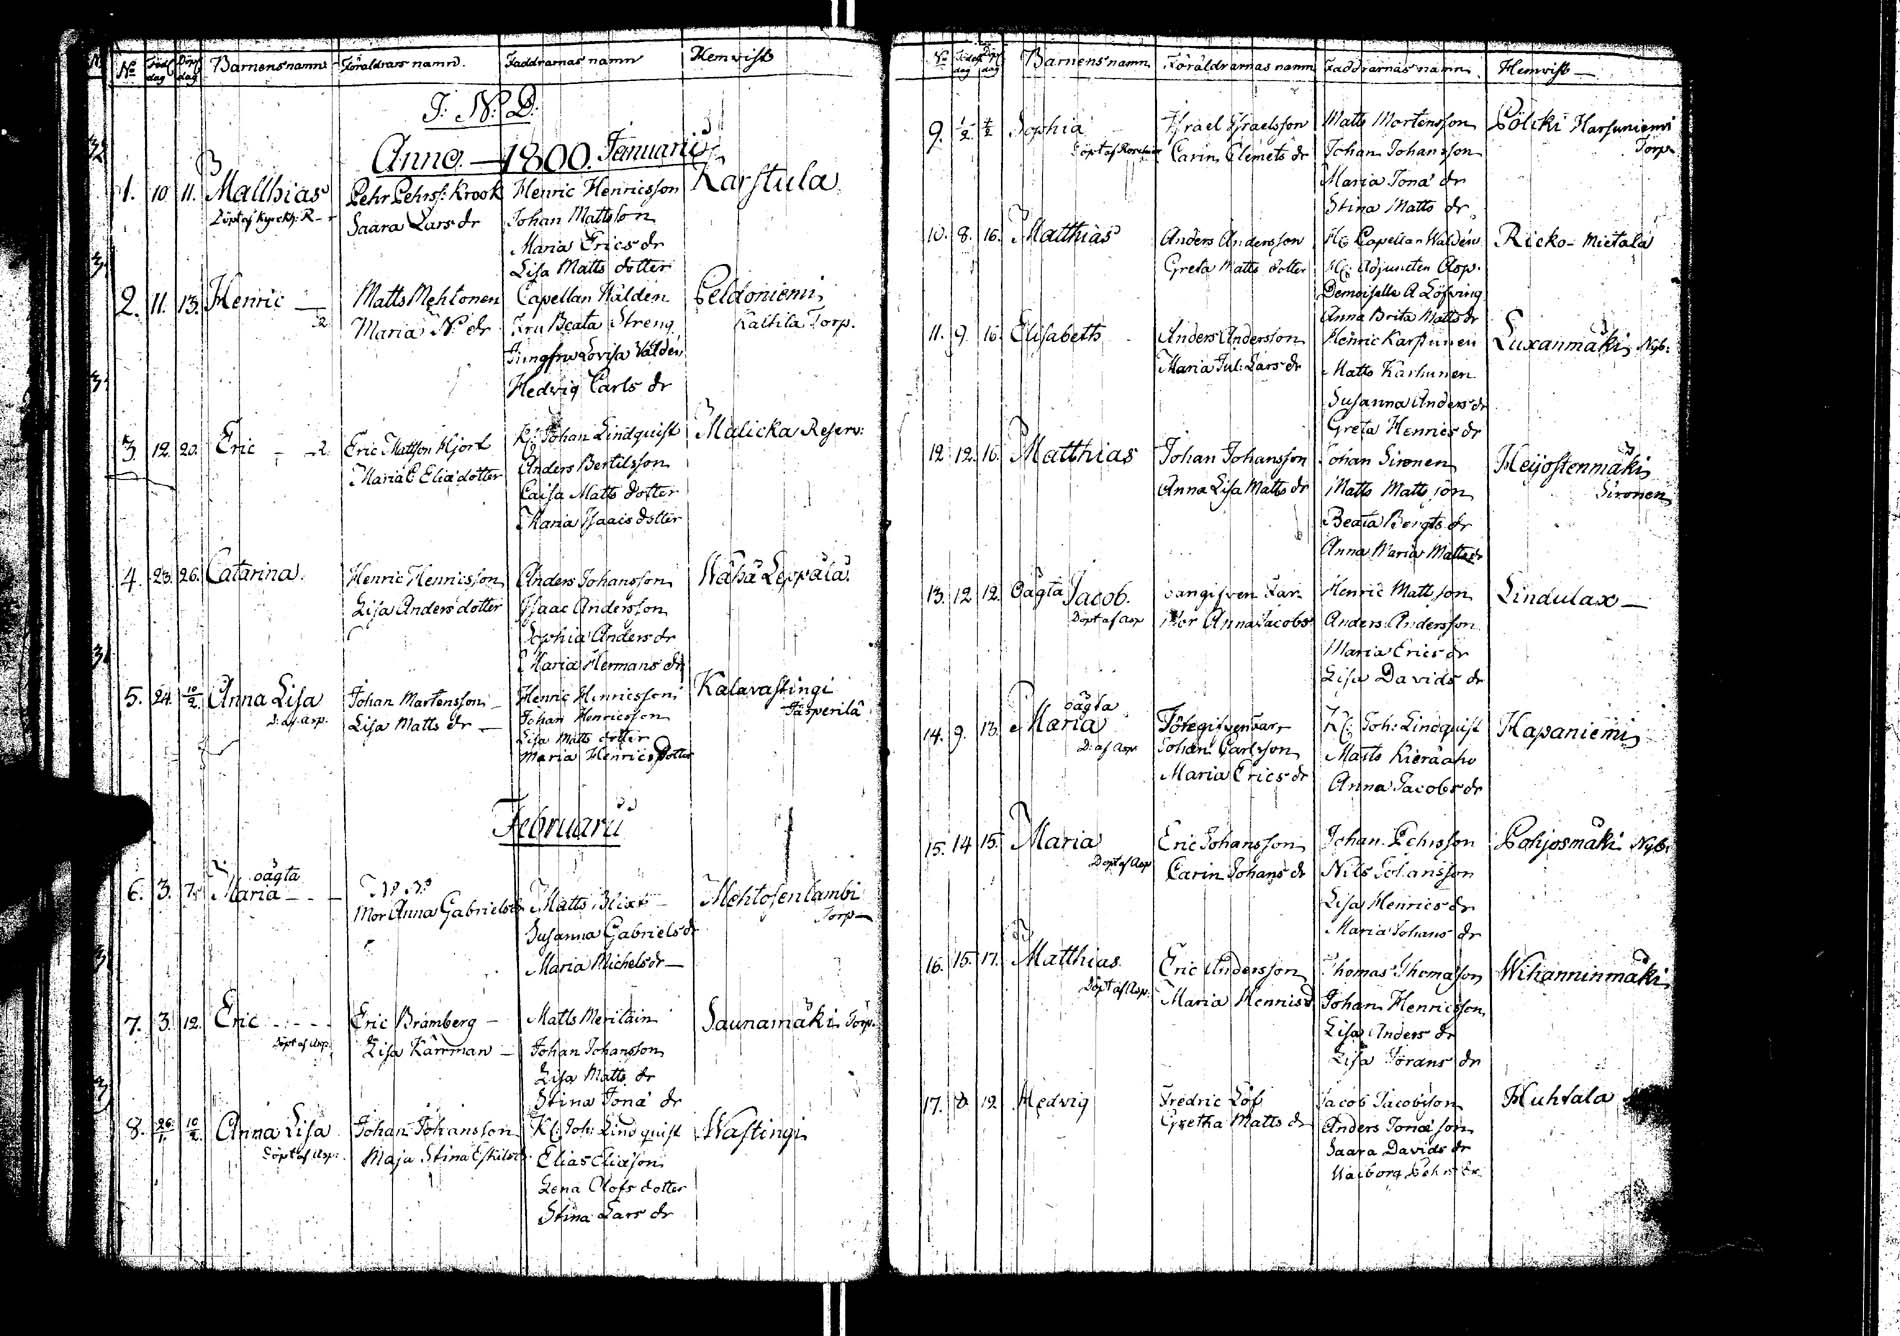 No Föd. dag Döp. dag Barnens namn Föräldrars namn. Faddrarnas namn Hemvist
J: N: D:
Anno. — 1800. Januarii
1. 10 11. Matthias Pehr Pehrss: Krook Henric Henricsson Karstula
Döpt af Kyrckh: R— Saara Lars dr Johan Mattsson
Maria Erics dr
Lisa Matts dotter
2. 11. 13. Henric — Matts Mehtonen Capellan Walden Peldoniemi
Maria N. dr Fru Beata Streng Kaltila Torp.
Jungfru Lovisa Walden
Hedvig Carls dr
3 12. 20. Eric Eric Mattson Hjort Kl: Johan Lindquist Malicka Reserv:
Maria E Eliædotter Anders Bertilsson
Caisa Matts dotter
Maria Isaacs dotter
4. 23. 26. Catarina. Henric Henricsson Anders Johansson Wähä Leppälä.
Lisa Anders dotter Isaac Andersson
Sophia Anders dr
Maria Hermans dr
5. 24. 10/2 Anna Lisa Johan Martensson Henric Henricsson Kalavastingi
D: af Asp. Lisa Matts dr — Johan Henricsson Jäsperilä
Lisa Matts dotter
Maria Henrics Dotter
Februarii
oägta
6. 3. 7. Maria — — N. N. Matts Blixt — Mehtosenlambi
Mor Anna Gabrielsdr Susanna Gabriels dr Torp —
Maria Michelsdr —
7. 3. 12. Eric - - - - Eric Bramberg — Matts Meritäin Saunamäki Torp.
Döpt af Asp. Lisa Kärrman — Johan Johansson
Lisa Matts dr
Stina Jonæ dr
8. 26/1. 10/2 Anna Lisa Johan Johansson Kl: Joh: Lindquist Wastingi
Döpt af Asp: Maja Stina Eskilsdr. Elias Eliæson
Lena Olofs dotter
Stina Lars dr
No Föd. dag Döp. dag Barnens namn Föräldrarnas namn Faddrarnas namn Hemvist —
9. 1/2 Sophia Israel Israelsson Matts Mortensson Pölcki Harjuniemi
Döpt af Carin Clemets dr Johan Johansson Torp
Maria Jonæ dr
Stina Matts dr
10. 8. 16. Matthias Anders Andersson Hr Capellan Waldén Rieko-Mietala
Greta Matts dotter Hr Adjuncten Asp.
Demoiselle A Löfving
Anna Brita Matts dr
11. 9. 16. Elisabeth Anders Andersson Henric Karhunen Luxanmäki Nyb:
Maria Jul: Lars dr Matts Karhunen
Susanna Anders dr
Greta Henrics dr
12 12. 16. Matthias Johan Johansson Johan Sironen Heijostenmäki
Anna Lisa Matts dr Matts Mattsson Sironen
Beata Bengts dr
Anna Maria Matts dr
13. 12 12. Oägta Jacob. Henric Mattsson Lindulax —
Döpt af Asp Mor Anna Jacobs Anders Andersson
Maria Erics dr
Lisa Davids dr
oägta
14. 9. 13. Maria Kl: Joh: Lindquist Hapaniemi
D: af Asp Johan Carlsson Matts Kieräaho
Maria Erics dr Anna Jacobs dr
15. 14 15. Maria Eric Johansson Johan Pehrsson Pohjosmäki Nyb:
Döpt af Asp Carin Johans dr Nils Johansson
Lisa Henrics dr
Maria Johans dr
16. 15. 17. Matthias Eric Andersson Thomas Thomasson Wihanninmäki
Döpt af Asp: Maria Henricsd Johan Henricsson
Lisa Anders dr
Lisa Jörans dr
17. 8 12 Hedvig Fredric Löf Jacob Jacobsson Huhtala
Gretha Matts dr Anders Jonæson
Saara Davids dr
Walborg Pehrs dr